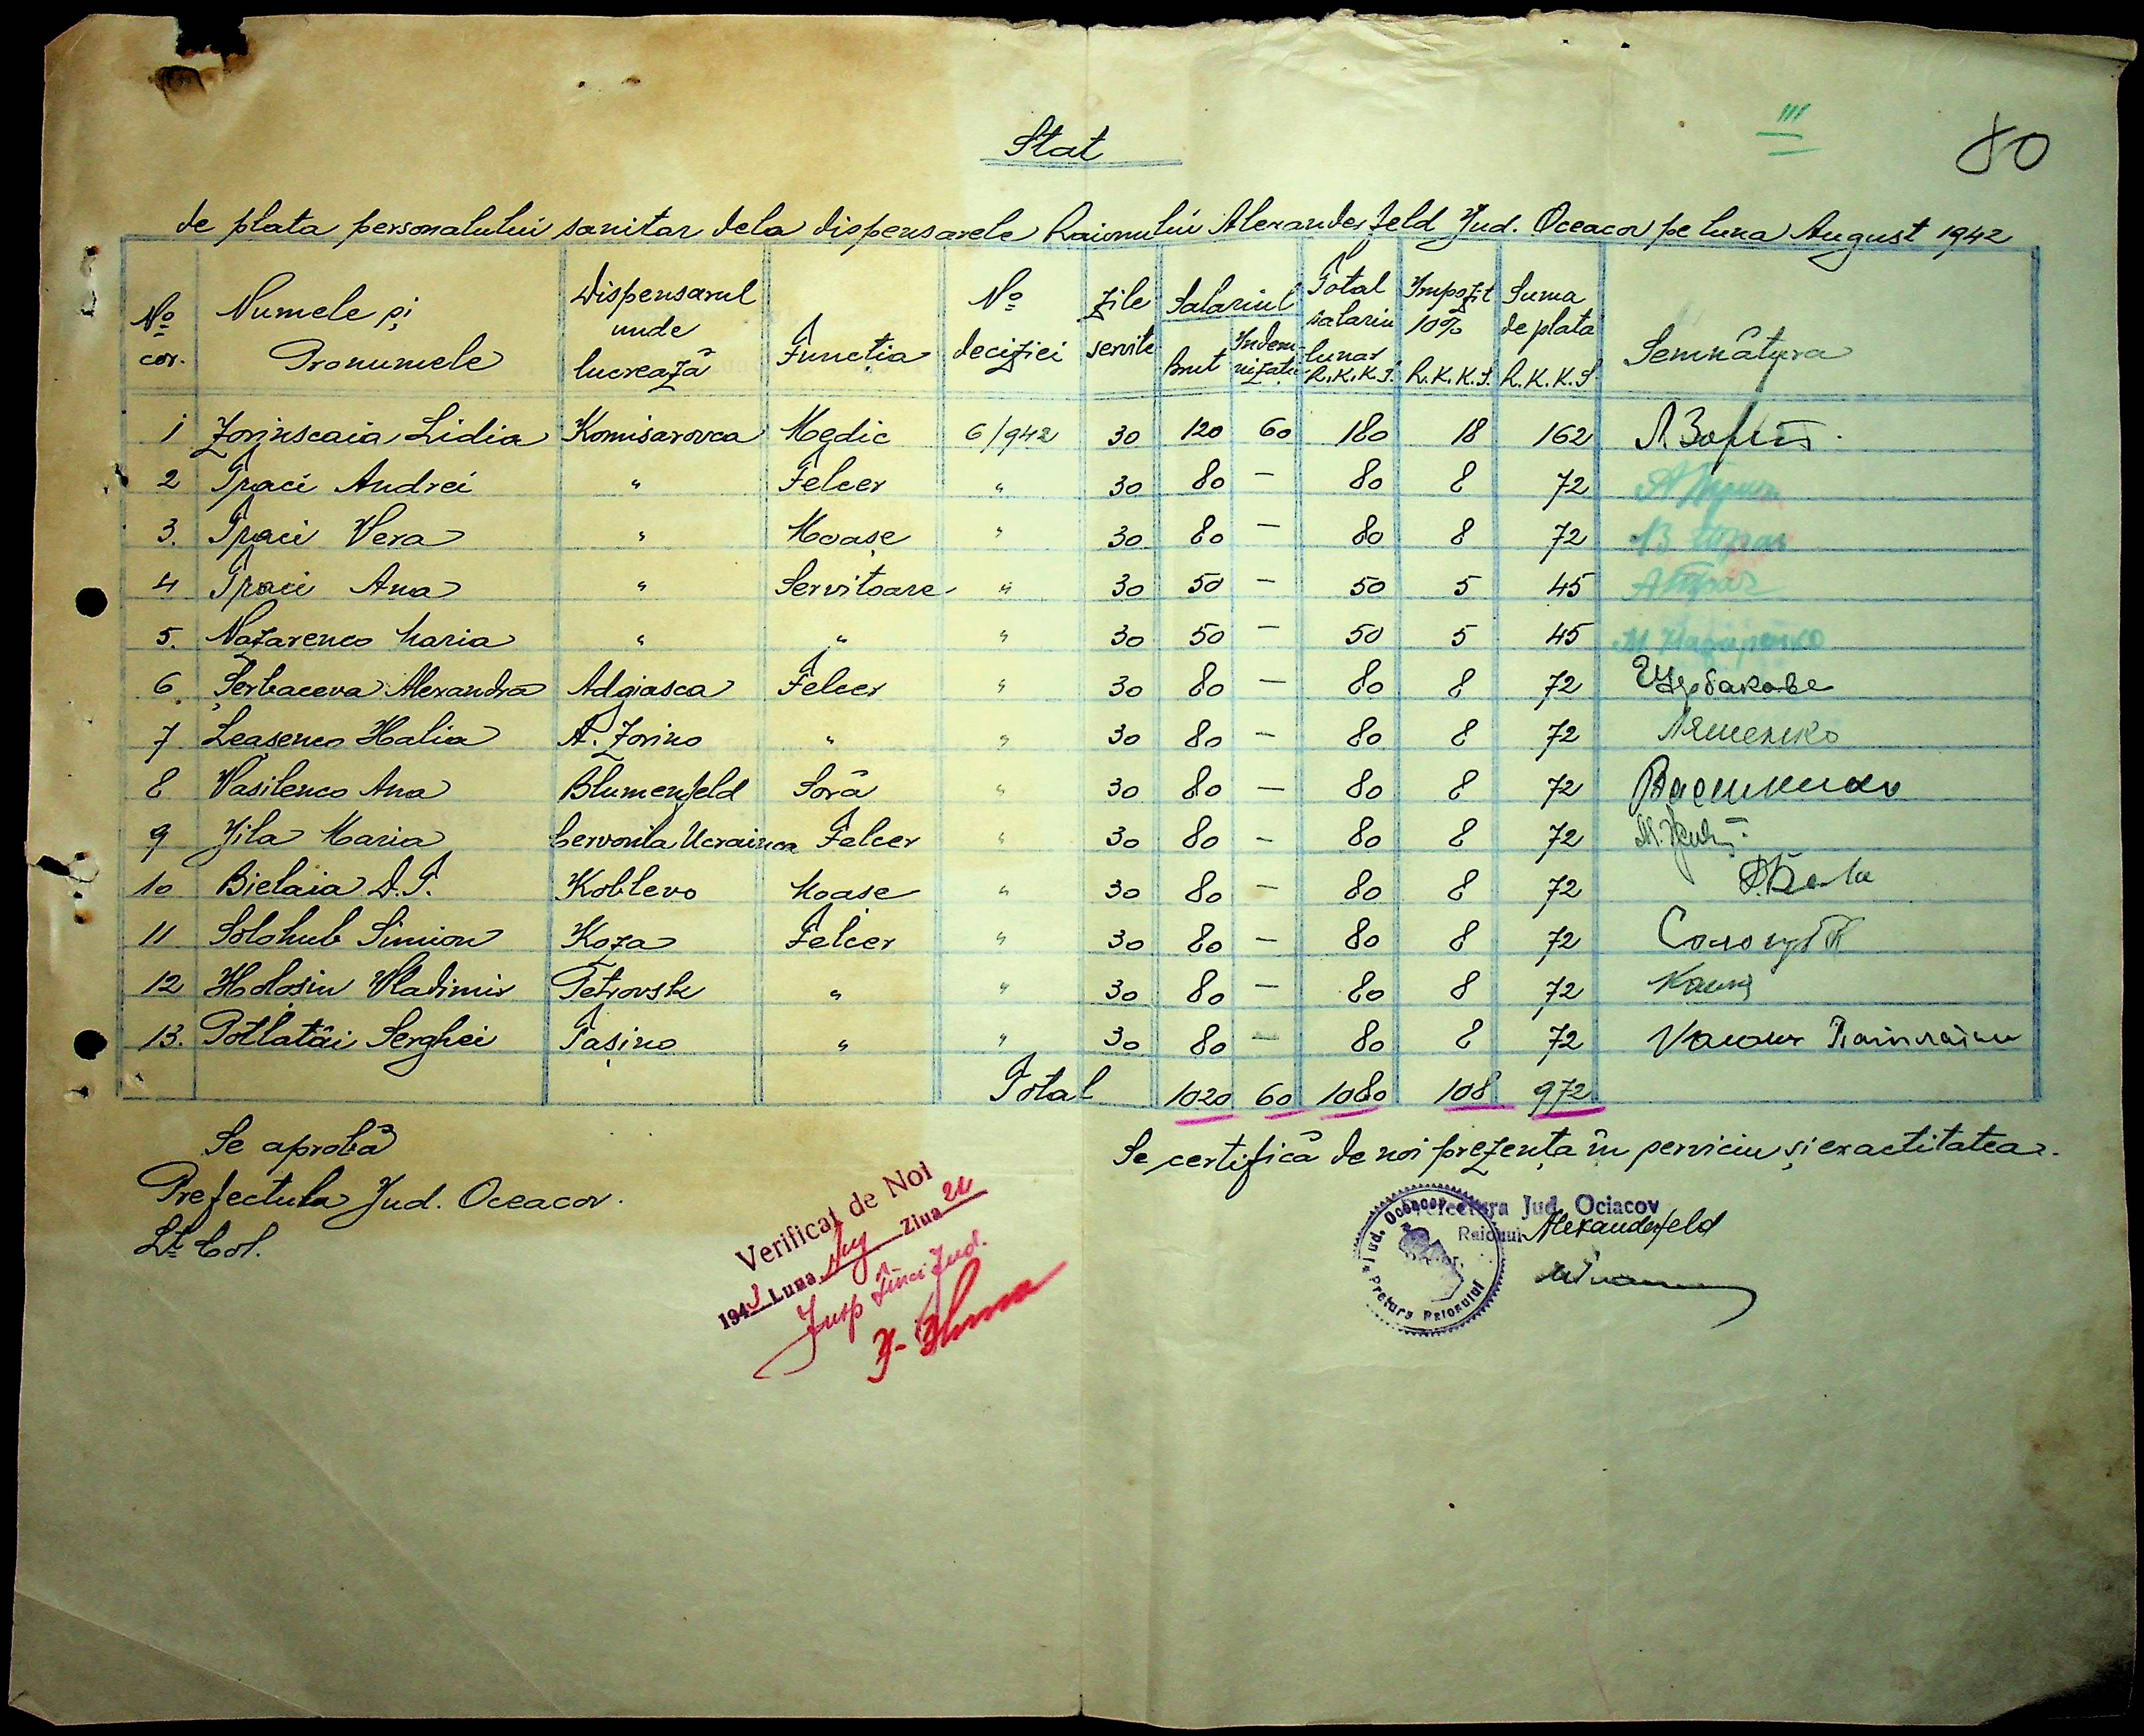 III
80
Stat
de plata personalului sanitar dela dispensarele Raionului Alexanderfeld Jud. Oceacov pe luna August 1942
No cor. Numele și Pronumele Dispensarul unde lucrează Funcția No deciziei Zile servite Salariul Brut Indemnizație Total salariu lunar R.K.K.S. Impozit 10% R.K.K.S. Suma de plată R.K.K.S. Semnătura
1 Zorinscaia Lidia Komisarovca Medic 6/942 30 120 60 180 18 162
2 Andrei " Felcer " 30 80 — 80 8 72
3. Vera " Moașe " 30 80 — 80 8 72
4 Ana " Servitoare " 30 50 — 50 5 45
5. Nazarenco Maria " " " 30 50 — 50 5 45 М. Назаренко
6 Șerbaceva Alexandra Adgiasca Felcer " 30 80 — 80 8 72
7 Leașenco Halia A. Zorino " " 30 80 — 80 8 72 Ляшенко
8 Vasilenco Ana Blumenfeld Soră " 30 80 — 80 8 72
9 Jila Maria Cervonla Ucrainca Felcer " 30 80 — 80 8 72
10 Bielaia D.T. Koblevo Moașe " 30 80 — 80 8 72
11 Solohub Simion Koza Felcer " 30 80 — 80 8 72 Сологуб
12 Holoșin Vladimir Petrovsk " " 30 80 — 80 8 72
13. Potlatâi Serghei Tașino " " 30 80 — 80 8 72
Total 1020 60 1080 108 972
Se aprobă
Prefectula Jud. Oceacov.
Lt. Col.
Verificat de Noi
1943 Luna Aug Ziua
Insp finci Jud.
Se certifică de noi prezența în serviciu și exactitatea.
Prefectura Jud. Ociacov
Raionul Alexanderfeld
Jud. Oceacov Pretura Raionului